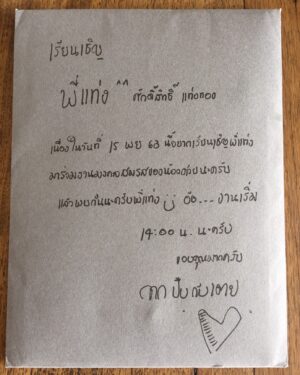 เรียนเชิญ
พี่แท่ง ^^ ศักดิ์สิทธิ์ แท่งทอง
เนื่องในวันที่ 15 พย 63 นี้อยากเรียนเชิญพี่แท่ง
มาร่วมงานมงคลสมรสของน้องหน่อยนะครับ
แล้วพบกันนะครับพี่แท่ง อ้อ... งานเริ่ม
14:00 น. นะครับ
ขอบคุณมากครับ
จาก ปั๊บ กับ